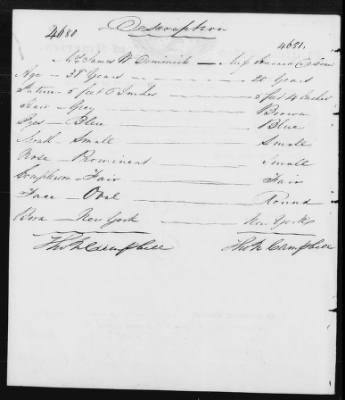 4680 Description 4681.
Mr James W Dominick —
Age — 38 Years — 28 Years
Stature — 5 feet 8 Inches — 5 feet 4 Inches
Hair — Grey — Brown
Eyes — Blue — Blue
Mouth — Small — Small
Nose — Prominent — Small
Complexion — Fair — Fair
Face — Oval — Round
Born — New York — New York
Thos N Campbell Thos N Campbell